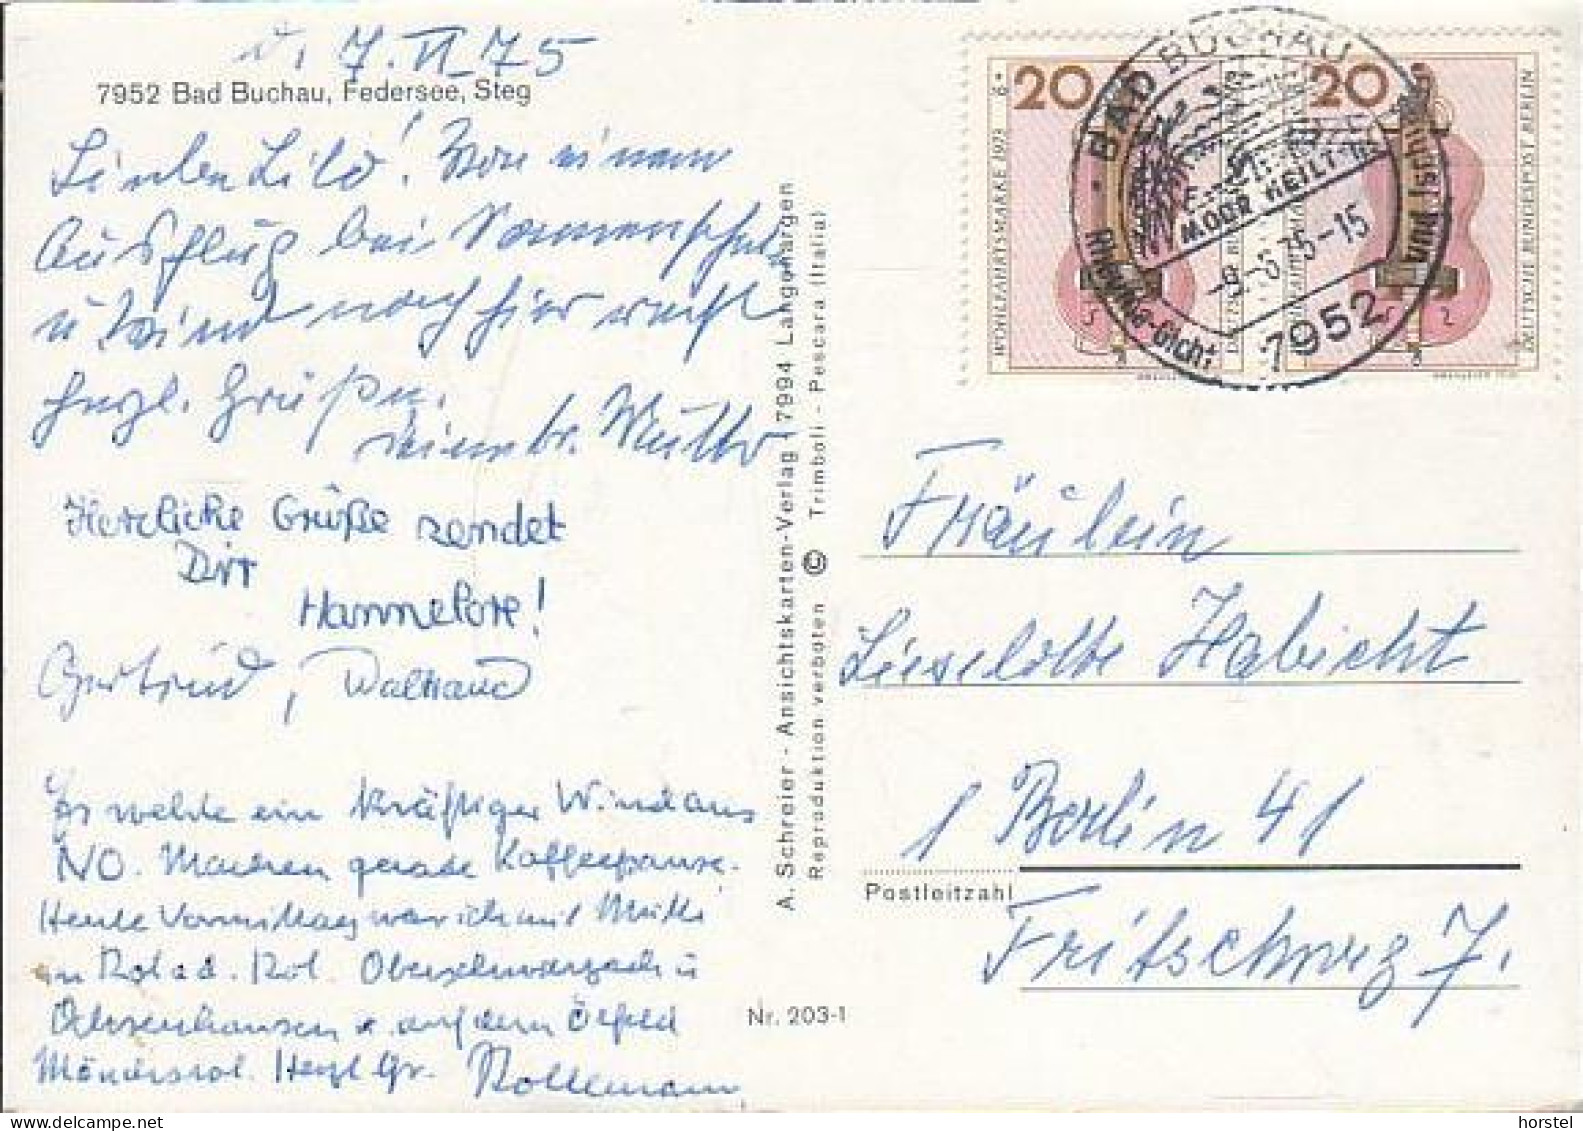 d. 7.VI.75
7952 Bad Buchau, Federsee, Steg
Lieben Lilo! Von einem
Ausflug bei Sonnenschein
u Wind noch hier recht
herzl. Grüße.
Mutti
Herzliche Grüße sendet
Dir
Hannelore!
Gertrud, Waltraud
Es wehte ein kräftiger Wind aus
NO. Machen gerade Kaffeepause.
Heute Vormittag war ich mit Mutti
in Rot a.d. Rot. Oberschwarzach u
Ochsenhausen auf dem Ölfeld
Mönchsrot. Herzl Gr.
A. Schreier - Ansichtskarten-Verlag - 7994 Langenargen
Reproduktion verboten © Trimboli - Pescara (Italia)
Nr. 203-1
20
WOHLFAHRTSMARKE 1973
20
DEUTSCHE BUNDESPOST BERLIN
BAD BUCHAU
MOOR HEILT
Rheuma-Gicht und Ischias
-9.-6.75-15
7952
Fräulein
Lieselotte Habicht
1 Berlin 41
Postleitzahl
Fritschweg 7.